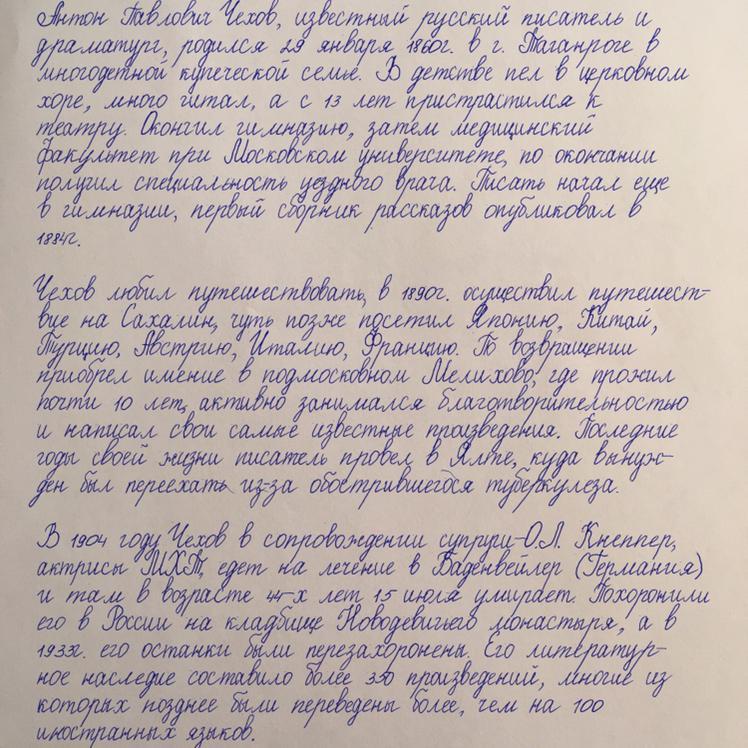 Антон Павлович Чехов, известный русский писатель и
драматург, родился 29 января 1860г. в г. Таганроге в
многодетной купеческой семье. В детстве пел в церковном
хоре, много читал, а с 13 лет пристрастился к
театру. Окончил гимназию, затем медицинский
факультет при Московском университете, по окончании
получил специальность уездного врача. Писать начал еще
в гимназии, первый сборник рассказов опубликовал в
1884г.
Чехов любил путешествовать, в 1890г. осуществил путешест-
вие на Сахалин, чуть позже посетил Японию, Китай,
Турцию, Австрию, Италию, Францию. По возвращении
приобрел имение в подмосковном Мелихово, где прожил
почти 10 лет, активно занимался благотворительностью
и написал свои самые известные произведения. Последние
годы своей жизни писатель провел в Ялте, куда вынуж-
ден был переехать из-за обострившегося туберкулеза.
В 1904 году Чехов в сопровождении супруги-О.Л. Кнеппер,
актрисы МХТ, едет на лечение в Баденвейлер (Германия)
и там в возрасте 44-х лет 15 июля умирает. Похоронили
его в России на кладбище Новодевичьего монастыря, а в
его останки были перезахоронены. Его литератур-
ное наследие составило более 350 произведений, многие из
которых позднее были переведены более, чем на 100
иностранных языков.